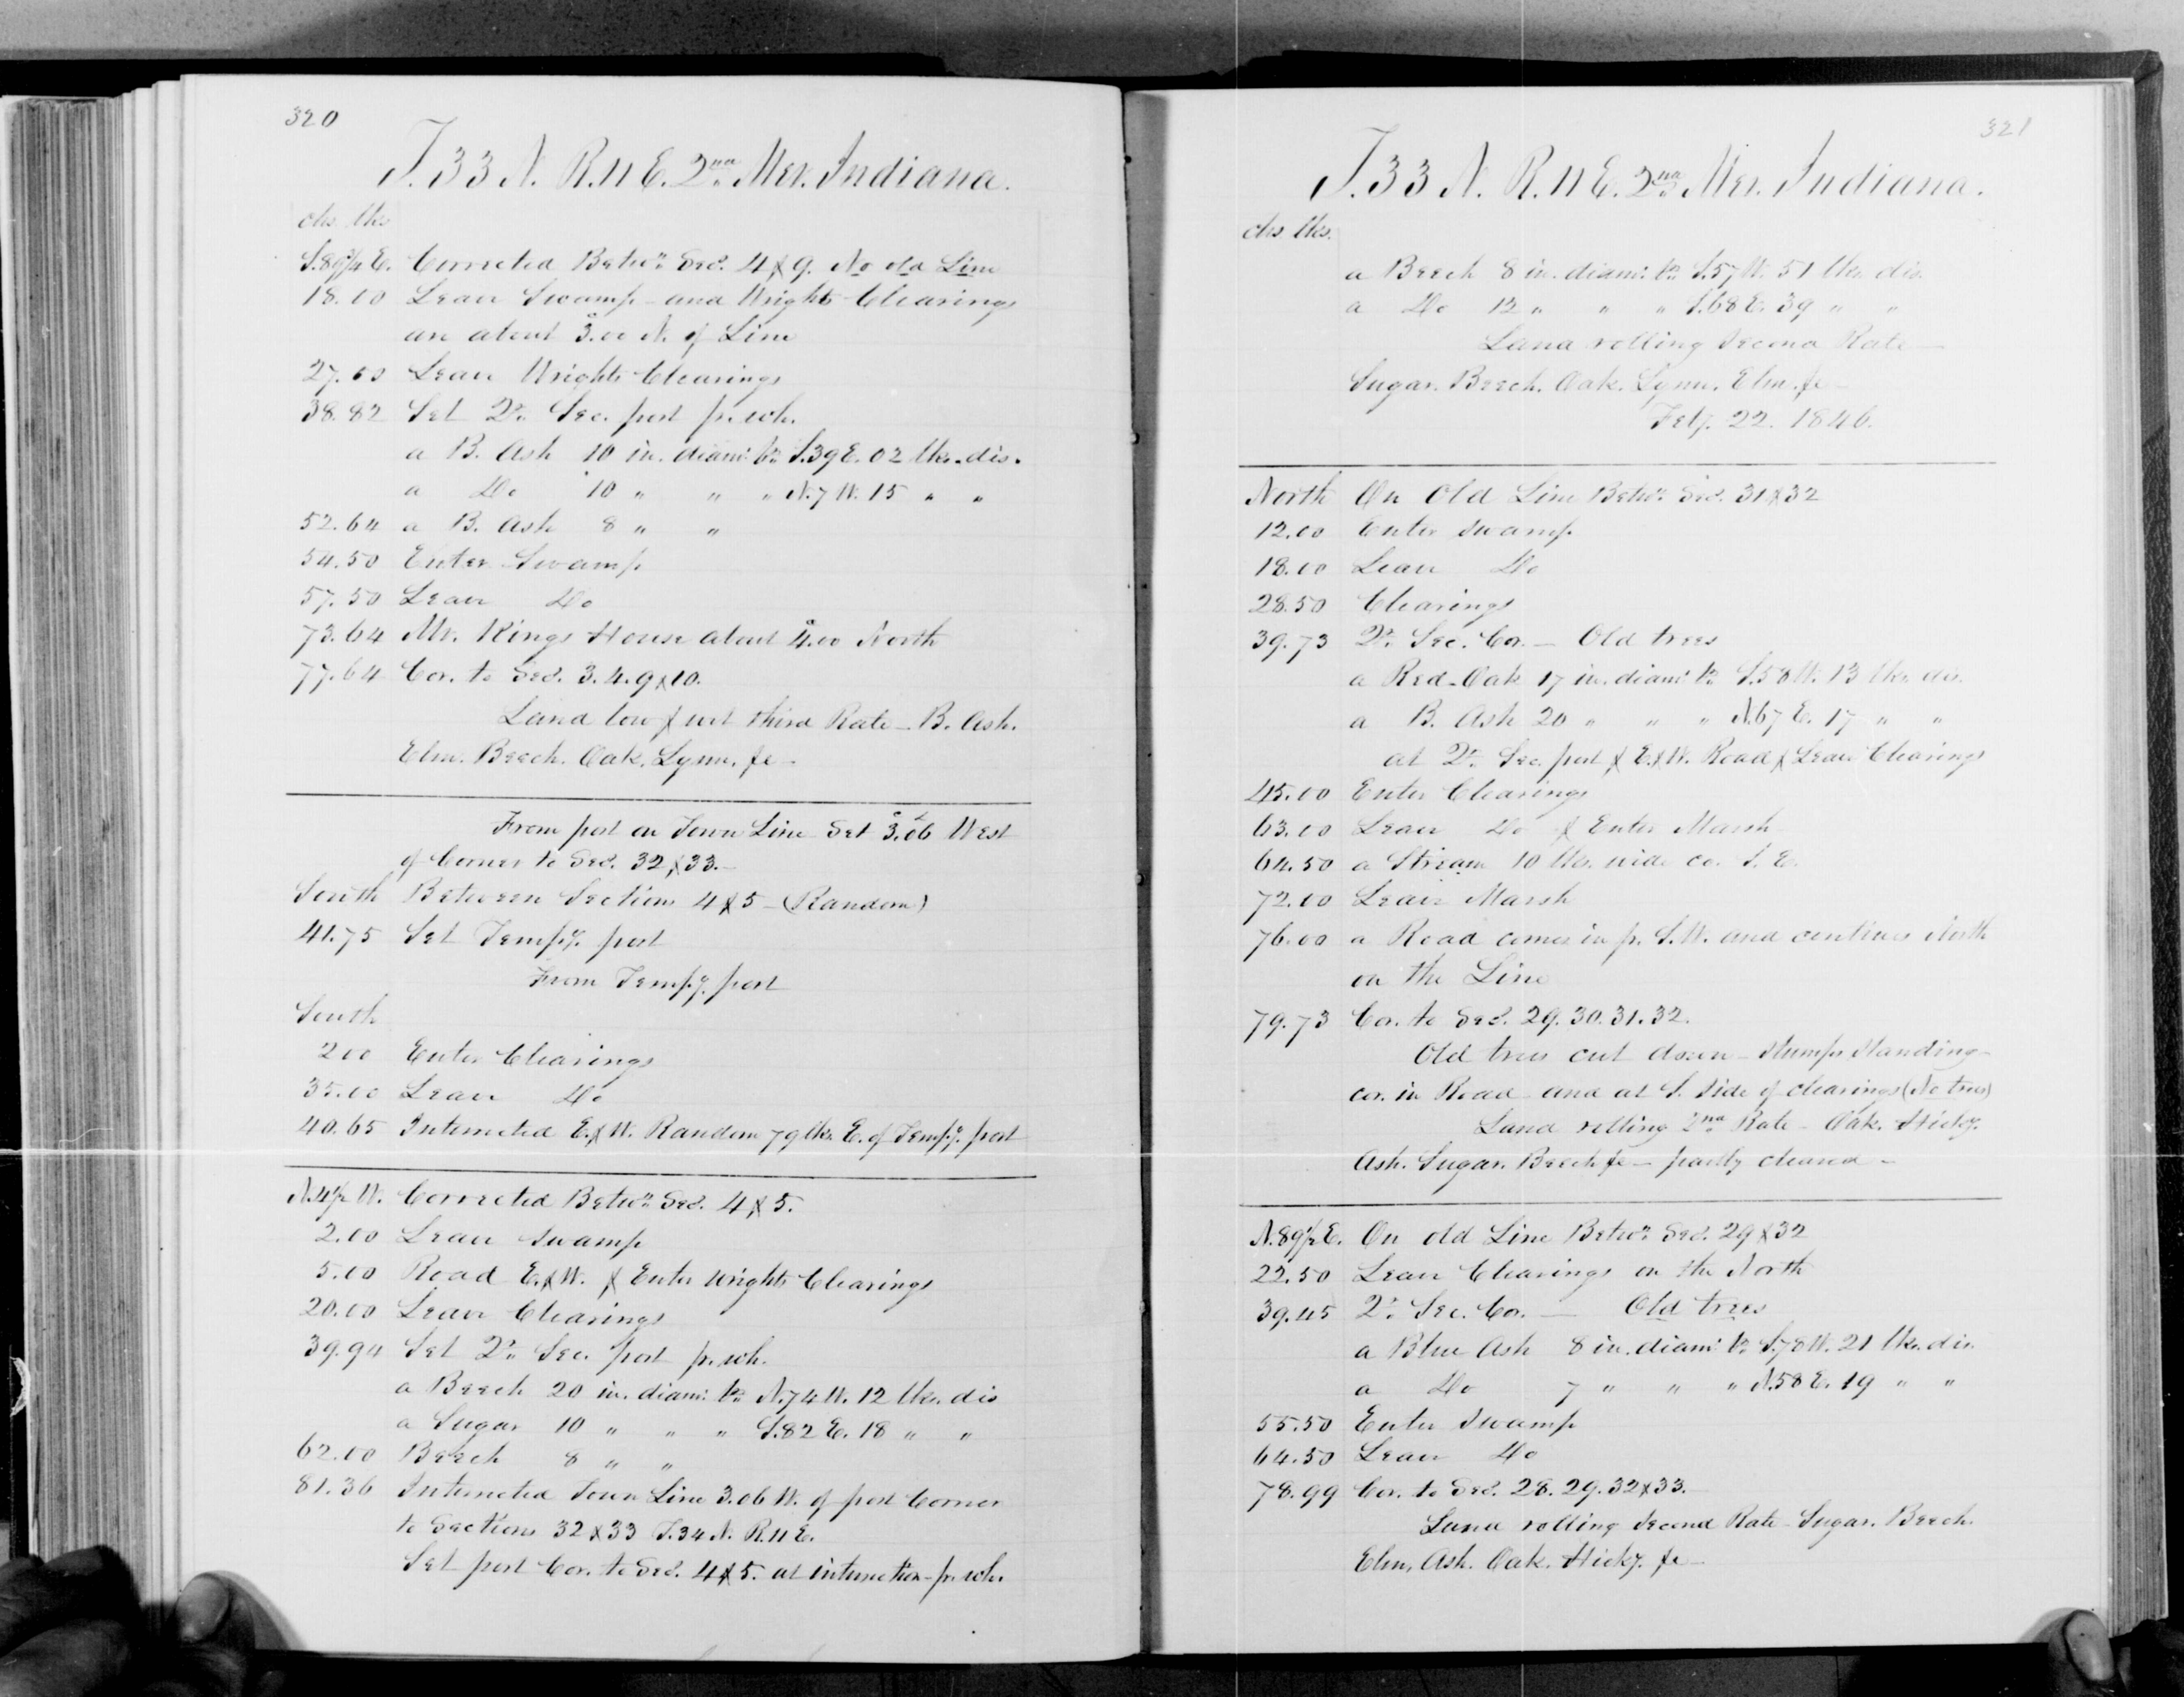 320
T. 33 N. R. 11 E. 2nd Mer. Indiana.
chs. lks
S. 89 3/4 E. Corrected Betwn. Secs. 4 & 9. No old Line
18.00 Leave Swamp and Wrights Clearings
are about 3.00 N. of Line
27.00 Leave Wrights Clearings
38.82 Set Qr. Sec. post fr. wh.
a B. Ash 10 in. diam: br. S. 39 E. 02 lks. dis.
a Do 10 " " " N. 7 W. 15 " "
52.64 a B. Ash 8 " "
54.50 Enter Swamp
57.50 Leave Do
73.64 Mr. Kings House about 4.00 North
77.64 Cor. to Secs. 3. 4. 9 & 10.
Land low & wet third Rate - B. Ash.
Elm. Beech. Oak. Lynn. &c -
From post on Town Line Set 3.06 West
of Corner to Secs. 32 & 33. -
South Between Sections 4 & 5 - (Random)
41.75 Set Tempy. post
From Tempy. post
South
2.00 Enter Clearings
35.00 Leave Do
40.65 Intersected E. & W. Random 79 lks. E. of Tempy. post
N. 4 1/2 W. Corrected Betwn. Secs. 4 & 5.
2.00 Leave swamp
5.00 Road E. & W. & Enter Wrights Clearings
20.00 Leave Clearings
39.94 Set Qr. Sec. post fr. wh.
a Beech 20 in. diam: br. N. 74 W. 12 lks. dis
a Sugar 10 " " " S. 82 E. 18 " "
62.00 Beech 8 " "
81.36 Intersected Town Line 3.06 W. of post Corner
to Sections 32 & 33 T. 34 N. R. 11 E.
Set post Cor. to Secs. 4 & 5. at intersection - fr. wh.
321
T. 33 N. R. 11 E. 2nd Mer. Indiana.
chs. lks.
a Beech 8 in. diam: br. S. 57 W. 51 lks. dis.
a Do 12 " " " S. 68 E. 39 " "
Land rolling Second Rate -
Sugar. Beech. Oak. Lynn. Elm. &c -
Feby. 22. 1846.
North On Old Line Betwn. Secs. 31 & 32
12.00 Enter swamp
18.00 Leave Do
28.50 Clearings
39.73 Qr. Sec. Cor. - Old trees
a Red-Oak 17 in. diam: br. S. 58 W. 13 lks. dis.
a B. Ash 20 " " " N. 67 E. 17 " "
at Qr. Sec. post & E. & W. Road & Leave Clearings
45.00 Enter Clearings
63.00 Leave Do & Enter Marsh
64.50 a Stream 10 lks. wide co. S. E.
72.00 Leave Marsh
76.00 a Road comes in fr. S.W. and continues North
on the Line
79.73 Cor. to Secs. 29. 30. 31. 32.
Old trees cut down - Stumps Standing -
cor. in Road and at S. Side of clearings (No trees)
Land rolling 2nd Rate - Oak. Hicky.
Ash. Sugar. Beech &c - partly cleared -
N. 89 1/2 E. On old Line Betwn. Secs. 29 & 32
22.50 Leave Clearings on the North
39.45 Qr. Sec. Cor. - Old trees
a Blue Ash 8 in. diam: br. S. 78 W. 21 lks. dis.
a Do 7 " " " N. 58 E. 19 " "
55.50 Enter Swamp
64.50 Leave Do
78.99 Cor. to Secs. 28. 29. 32 & 33.
Land rolling Second Rate - Sugar. Beech.
Elm. Ash. Oak. Hicky. &c -